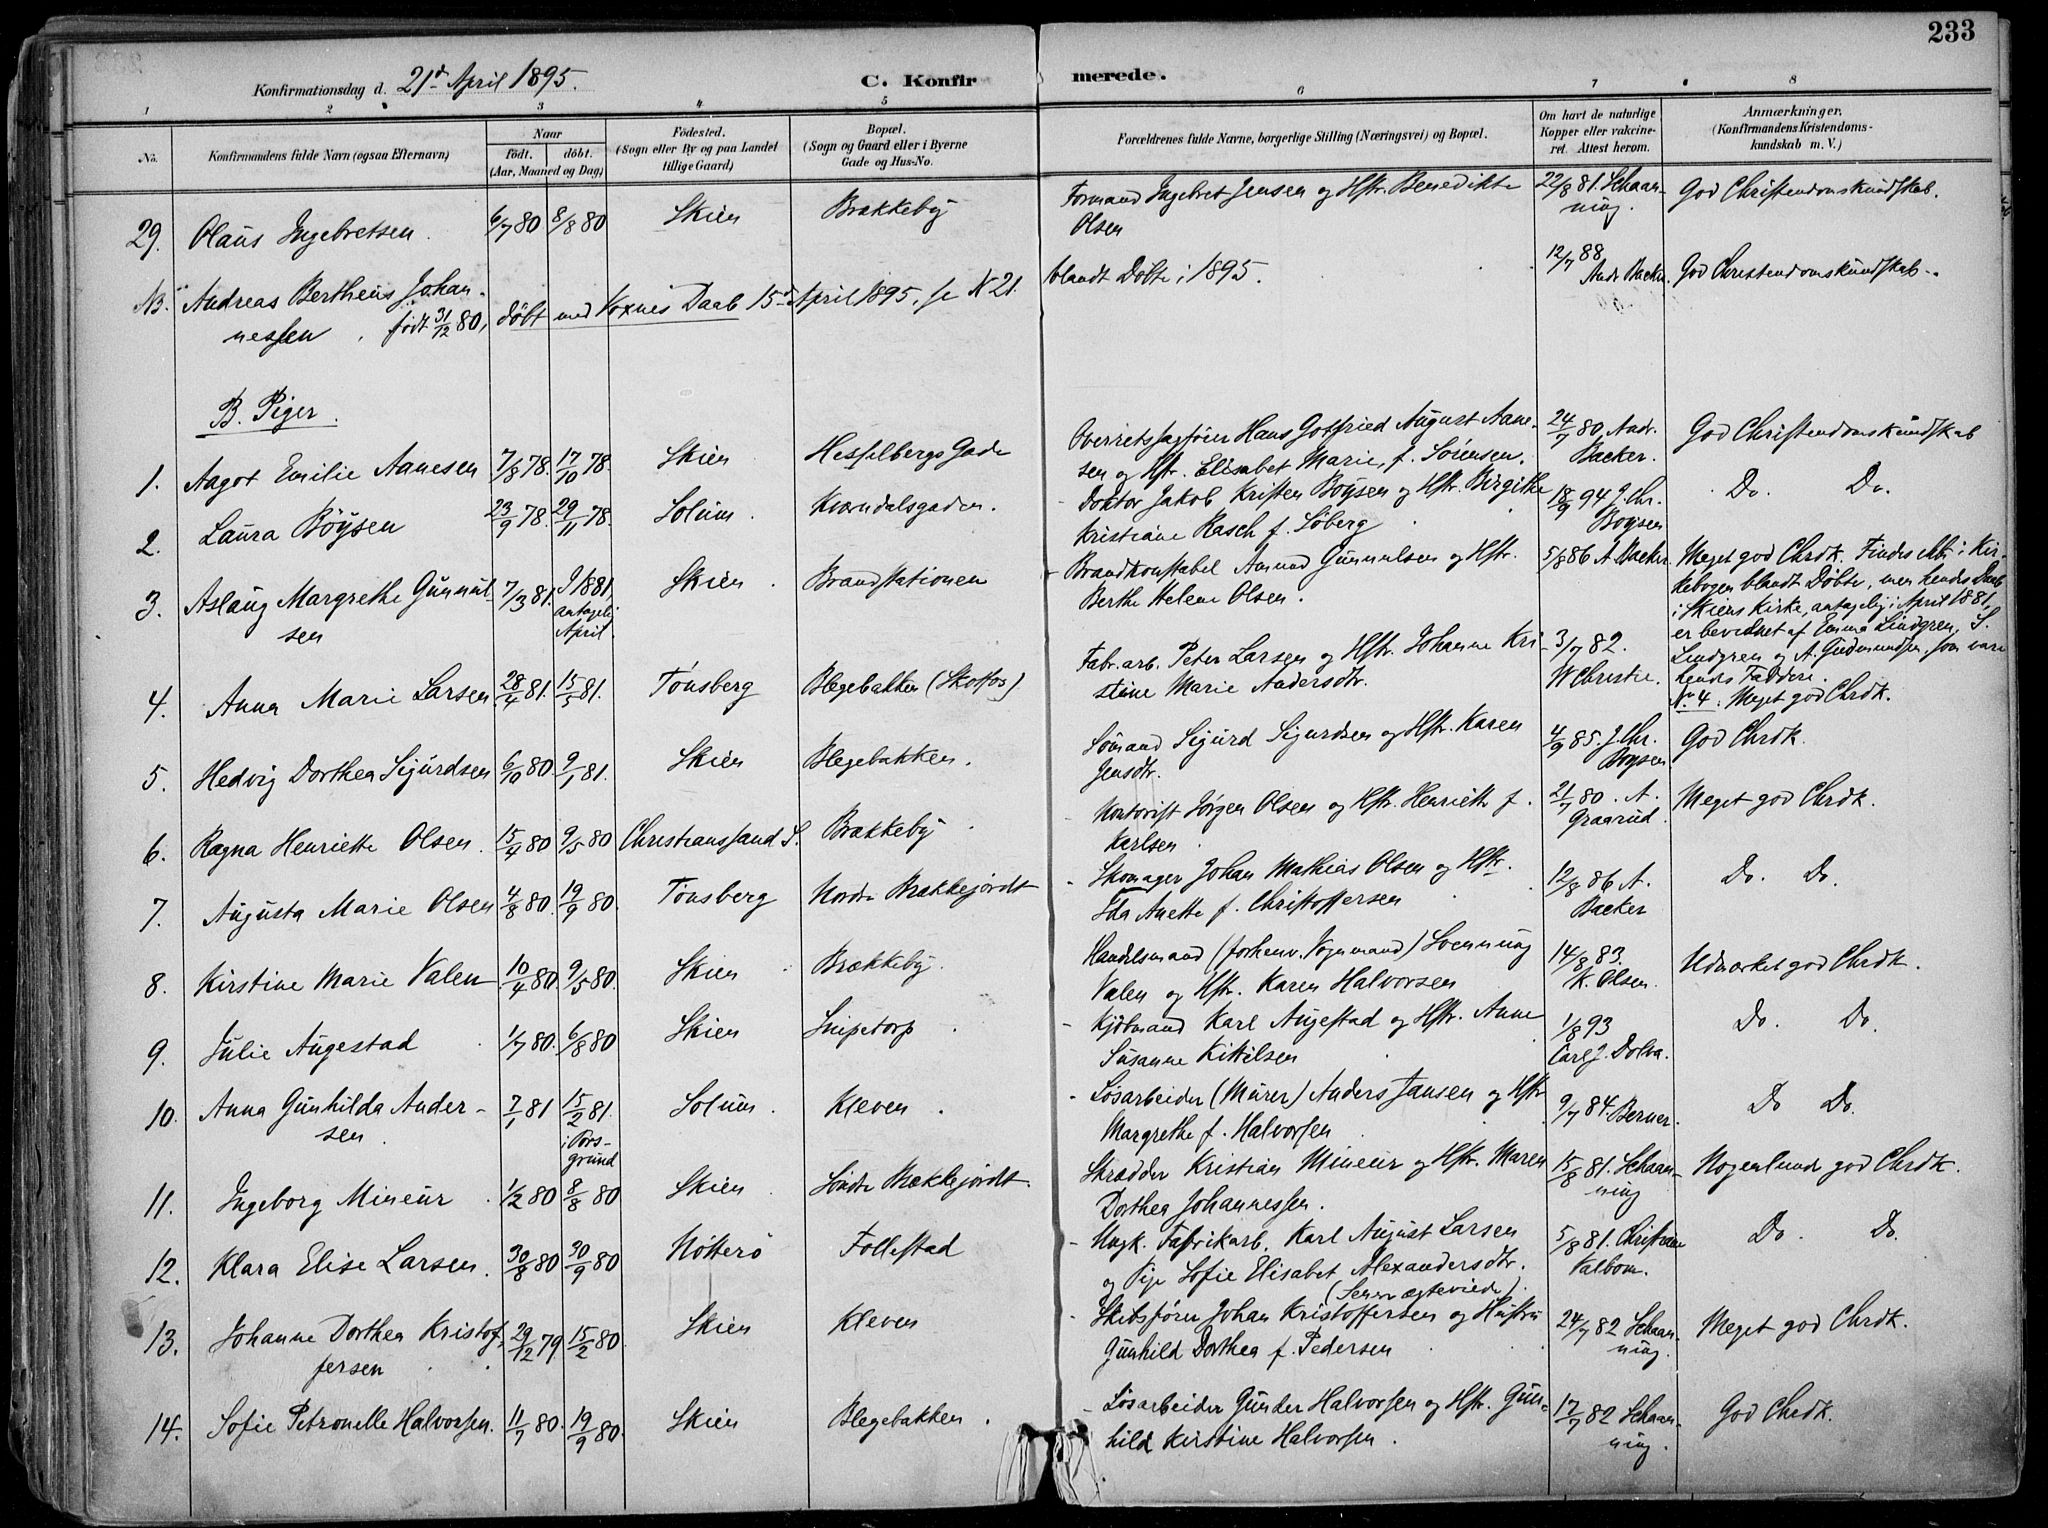 233
Konfirmationsdag d. 21d April 1895.
C. Konfirmerede.
1 2 3 4 5 6 7 8
No.
Konfirmandens fulde Navn (ogsaa Efternavn)
Naar
født. døbt.
(Aar, Maaned og Dag)
Fødested.
(Sogn eller By og paa Landet
tillige Gaard)
Bopæl.
(Sogn og Gaard eller i Byerne
Gade og Hus-No.
Forældrenes fulde Navne, borgerlige Stilling (Næringsvei) og Bopæl.
Om havt de naturlige
Kopper eller vakcine-
ret. Attest herom.
Anmærkninger,
(Konfirmandens Kristendoms-
kundskab m. V.)
29. Olaus Ingebretsen. 6/7 80 8/8 80 Skien Brækkeby Formand Ingebret Jensen og Hstr. Benedikte
Olsen
22/8 81. Schaan-
ning.
God Christendomskundskab.
NB. Andreas Bertheus Johan-
nessen, født 31/12 80, døbt med Voxnes Daab 15d April 1895, se N 21. blandt Døbte i 1895.
12/7 88
Andr. Backer.
God Christendomskundskab.
B. Piger.
1. Aagot Emilie Aanesen 7/8 78. 17/10 78. Skien Hesselbergs Gade
Overretssagfører Hans Gotfried August Aane-
sen og Hstr. Elisabet Marie, f. Sørensen.
24/7 80 Andr.
Backer.
God Christendomskundskab
2. Laura Böysen 23/9 78. 29/11 78. Solum. Kverndalsgaden.
Doktor Jakob Kristen Boysen og Hstr. Birgithe
Kristiane Rasch f. Söberg
18/9 94 J. Chr.
Boysen
Do. Do.
3. Aslaug Margrethe Gunnul-
sen
7/3 81. I 1881
antagelig
April
Skien Brandstationen
Brandkonstabel Amund Gunnulsen og Hstr.
Berthe Helene Olsen.
5/8 86 A. Backer.
Meget god Chrdk. Findes ikke i Kir-
kebogen blandt Döbte, men hendes Daab
i Skiens Kirke, antagelig i April 1881,
er bevidnet af Emma Lindgren, S.
Lindgren og A. Gudmundsen, som vare
hendes Faddere.
4. Anna Marie Larsen 28/4 81. 15/5 81. Tönsberg Blegebakken (Skotfos)
Fabr.arb. Peter Larsen og Hstr. Johanne Kri-
stine Marie Andersdtr.
3/7 82.
W Christie.
No 4. Meget god Chrdk.
5. Hedvig Dorthea Sigurdsen 6/10 80 9/1 81. Skien Blegebakken.
Sömand Sigurd Sigurdsen og Hstr. Karen
Jensdtr.
4/9 85. J. Chr.
Boysen
God Chrdk.
6. Ragna Henriette Olsen. 15/4 80 9/5 80 Christianssand S. Brækkeby
Kontorist Jörgen Olsen og Hstr. Henriette f.
Karlsen
21/7 80. A.
Graarud.
Meget god Chrdk.
7. Augusta Marie Olsen 4/8 80. 19/9 80. Tönsberg Nordre Brækkejordet
Skomager Johan Mathias Olsen og Hstr.
Ida Anette f. Christoffersen
12/8 86 A.
Backer
Do. Do.
8. Kirstine Marie Valen 10/4 80. 9/5 80. Skien Brækkeby.
Handelsmand (forhenv. Vognmand) Svennung
Valen og Hstr. Karen Halvorsen
14/8 83.
K. Olsen.
Udmærket god Chrdk.
9. Julie Augestad 1/7 80. 6/8 80 Skien Snipetorp.
Kjöbmand Karl Augestad og Hstr. Anne
Susanne Kittilsen
1/8 93
Carl J. Dolva.
Do. Do.
10. Anna Gunhilda Ander-
sen.
7/1 81 15/2 81.
i Pors-
grund
Solum. Kleven.
Lösarbeider (Murer) Anders Jansen og Hstr
Margrethe f. Halvorsen
9/7 84. Berner.
Do Do.
11. Ingeborg Mineur 1/2 80 8/8 80 Skien Söndre Brækkejordet.
Skrædder Kristian Mineur og Hstr. Maren
Dorthea Johannessen.
15/8 81. Schaan-
ning
Nogenlunde god Chrdk.
12. Klara Elise Larsen. 30/8 80 30/9 80 Nötterö Follestad
Ungk. Fabrikarb. Karl August Larsen
og Pige Sofie Elisabet Alexandersdtr.
(Senere ægteviede).
5/8 81. Christian
Valbom.
Do. Do.
13. Johanne Dorthea Kristof-
fersen
29/12 79 15/2 80 Skien Kleven
Skibsförer Johan Kristoffersen og Hustru
Gunhild Dorthea f. Pedersen
24/7 82 Schaan-
ning.
Meget god Chrdk.
14. Sofie Petronelle Halvorsen. 11/7 80. 19/9 80. Skien Blegebakken.
Lösarbeider Gunder Halvorsen og Hstr. Gun-
hild Kirstine Halvorsen.
17/7 82 Schaan-
ning.
God Chrdk.